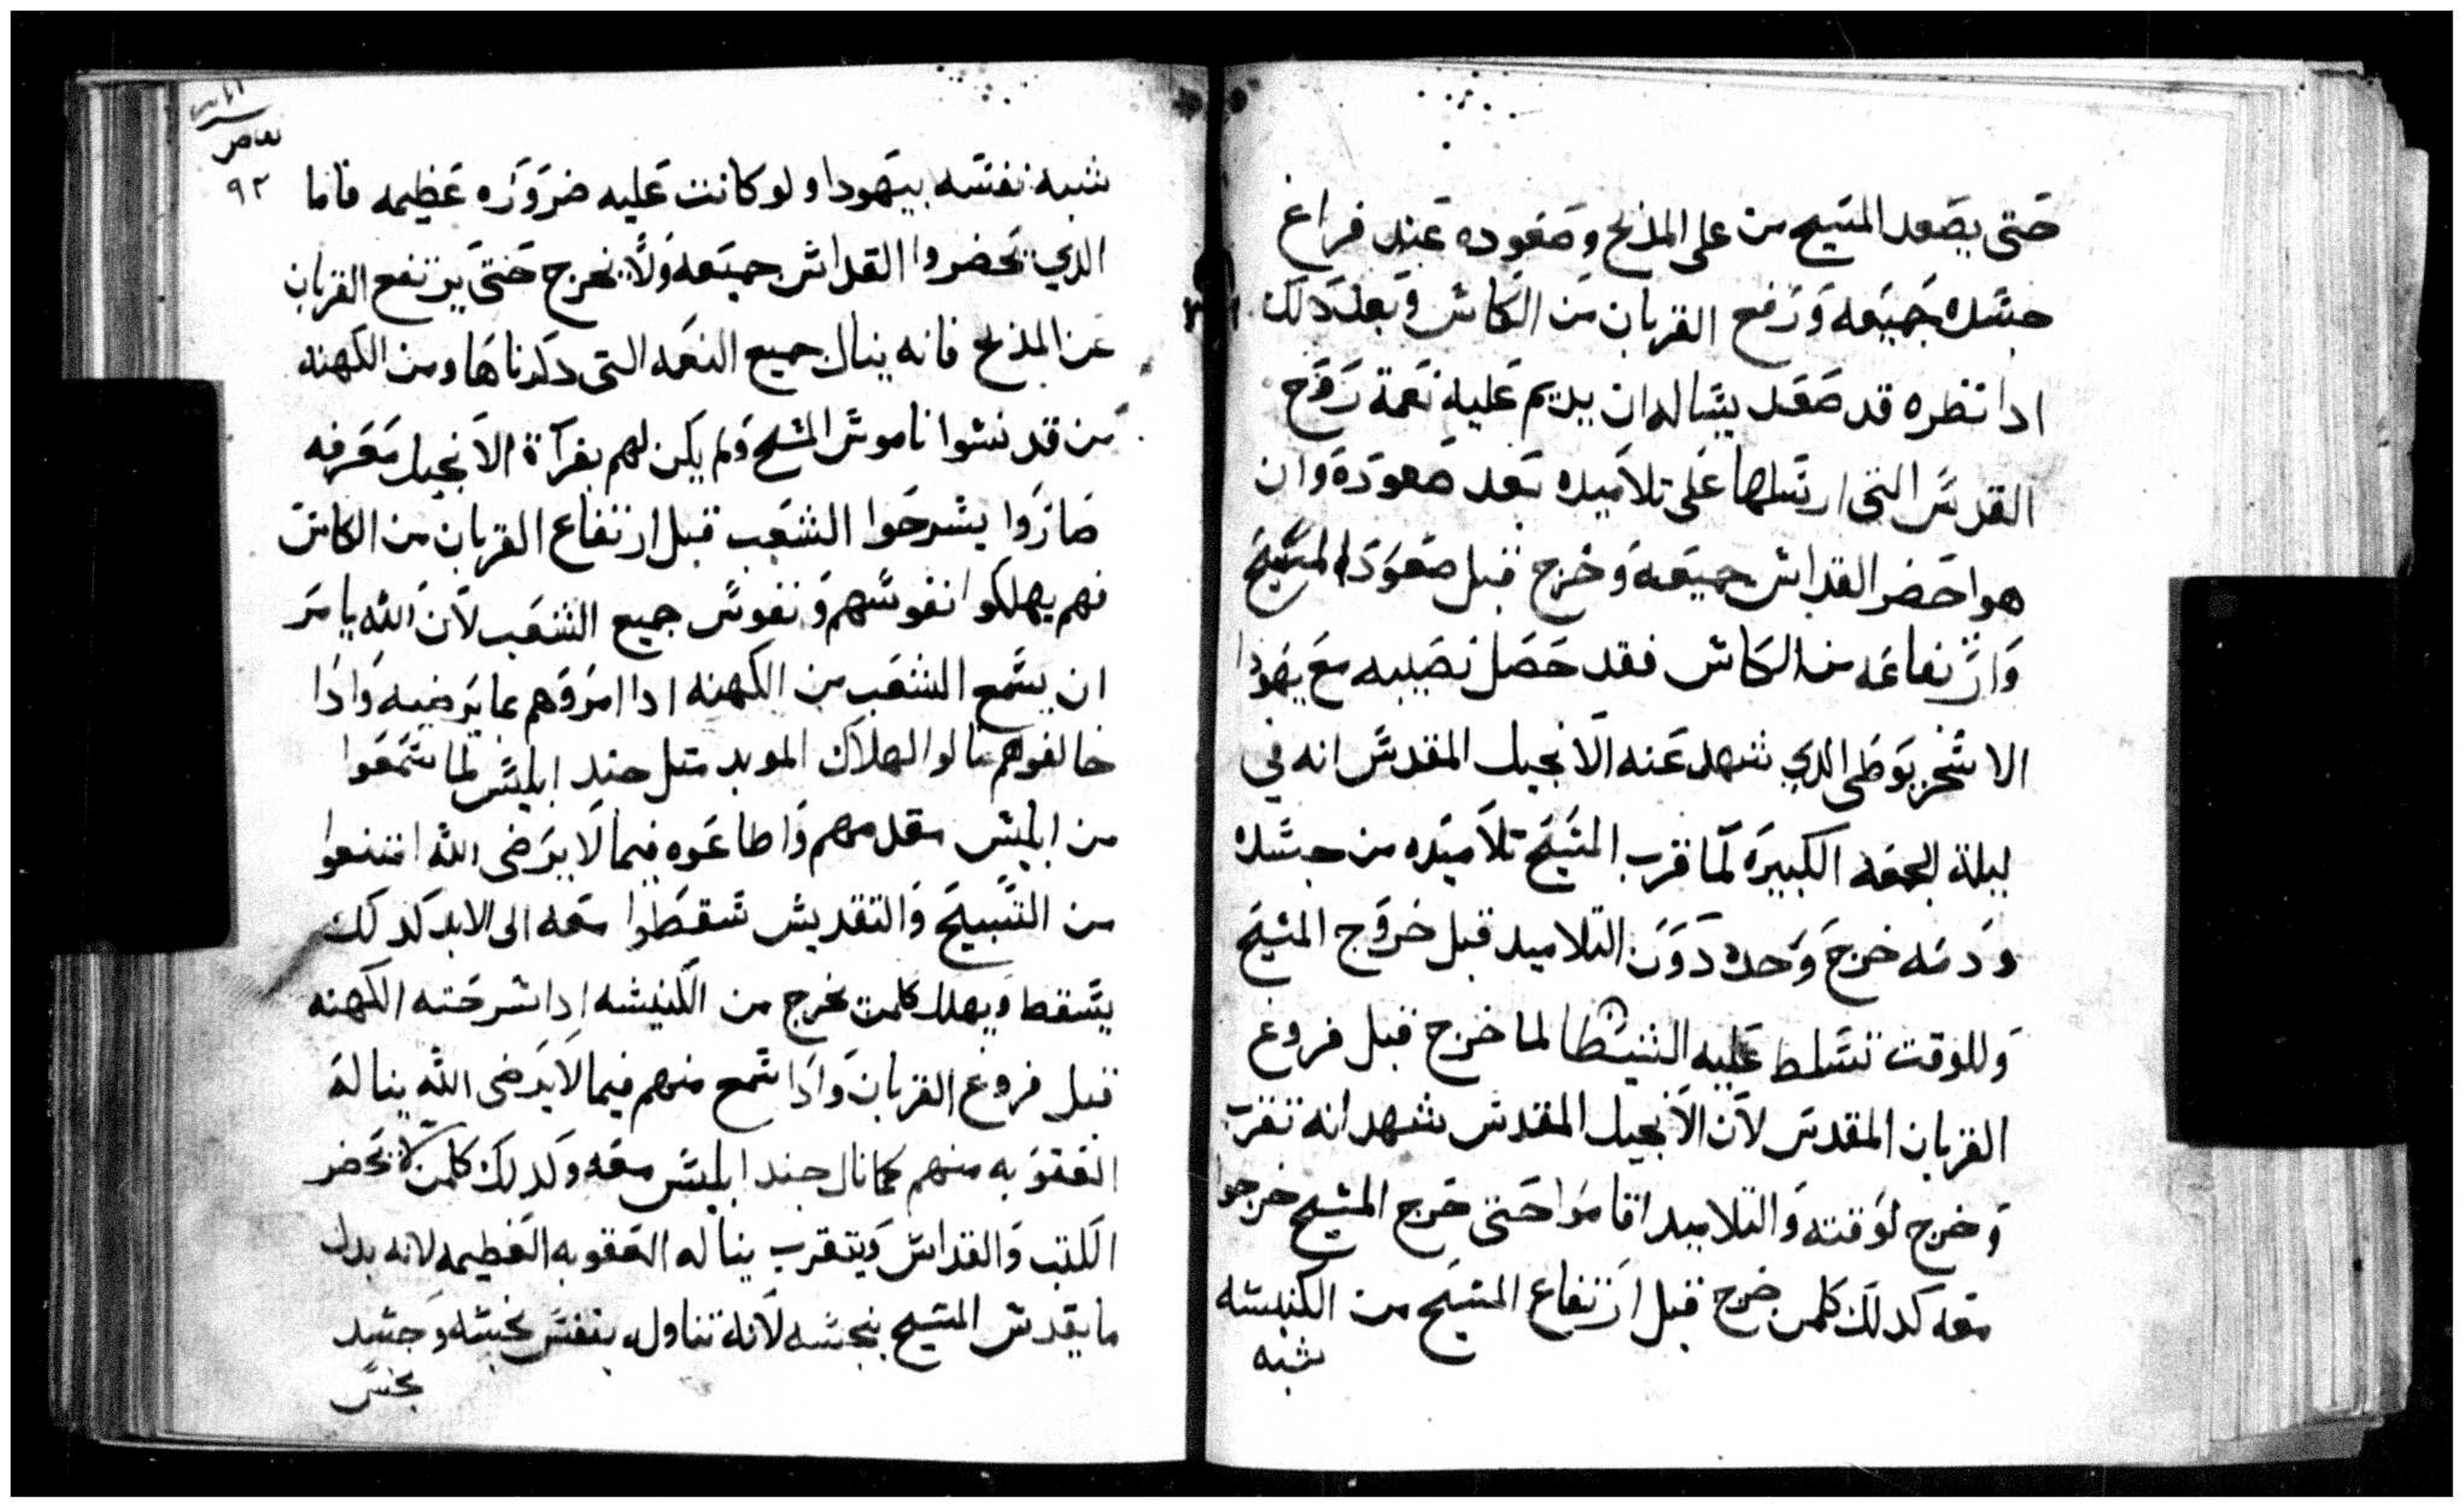 حتى يصعد المسيح من على المذبح وصعوده عند فراغ
جسده جميعه ورفع القربان من الكاس وبعد دلك
ادا نظره قد صعد يساله ان يديم عليه نعمة روح
القدس التى ارسلها على تلاميده بعد صعوده وان
هوا حضر القداس جميعه وخرج قبل صعود المسيح
وارتفاعه من الكاس فقد حصل نصيبه مع يهودا
الاسخريوطى الدي شهد عنه الانجيل المقدس انه في
ليلة الجمعه الكبيره لما قرب المسيح تلاميده من جسده
ودمه خرج وحده دون التلاميد قبل خروج المسيح
وللوقت تسلط عليه الشيطان لما خرج قبل فروغ
القربان المقدس لان الانجيل المقدس شهد انه تقرب
وخرج لوقته والتلاميد اقاموا حتى خرج المسيح خرجوا
معه كدلك كلمن خرج قبل ارتفاع المسيح من الكنيسه
شبه
٩٢
شبه نفسه بيهودا ولو كانت عليه ضروره عظيمه فاما
الدي يحضروا القداس جميعه ولا يخرج حتى يرتفع القربان
عن المذبح فانه ينال جميع النعمه التى دكرناها ومن الكهنه
من قد نسوا ناموس المسيح ولم يكن لهم بقرآة الانجيل معرفه
صاروا يسرحوا الشعب قبل ارتفاع القربان من الكاس
فهم يهلكوا نفوسهم ونفوس جميع الشعب لان الله يامر
ان يسمع الشعب من الكهنه ادا امروهم بما يرضيه وادا
خالفوهم نالوا الهلاك الموبد متل جند ابليس لما سمعوا
من ابليس مقدمهم واطاعوه فيما لا يرضى الله امتنعوا
من التسبيح والتقديس سقطوا معه الى الابد كدلك
يسقط ويهلك كلمن يخرج من الكنيسه ادا سرحته الكهنه
قبل فروغ القربان وادا سمع منهم فيما لا يرضى الله يناله
العقوبه منهم كما نال جند ابليس معه وكدلك كلمن لا يحضر
الكتب والقداس ويتقرب يناله العقوبه العظيمه لانه بدل
ما يقدس المسيح ينجسه لانه تناوله بنفس نجسه وجسد
نجس